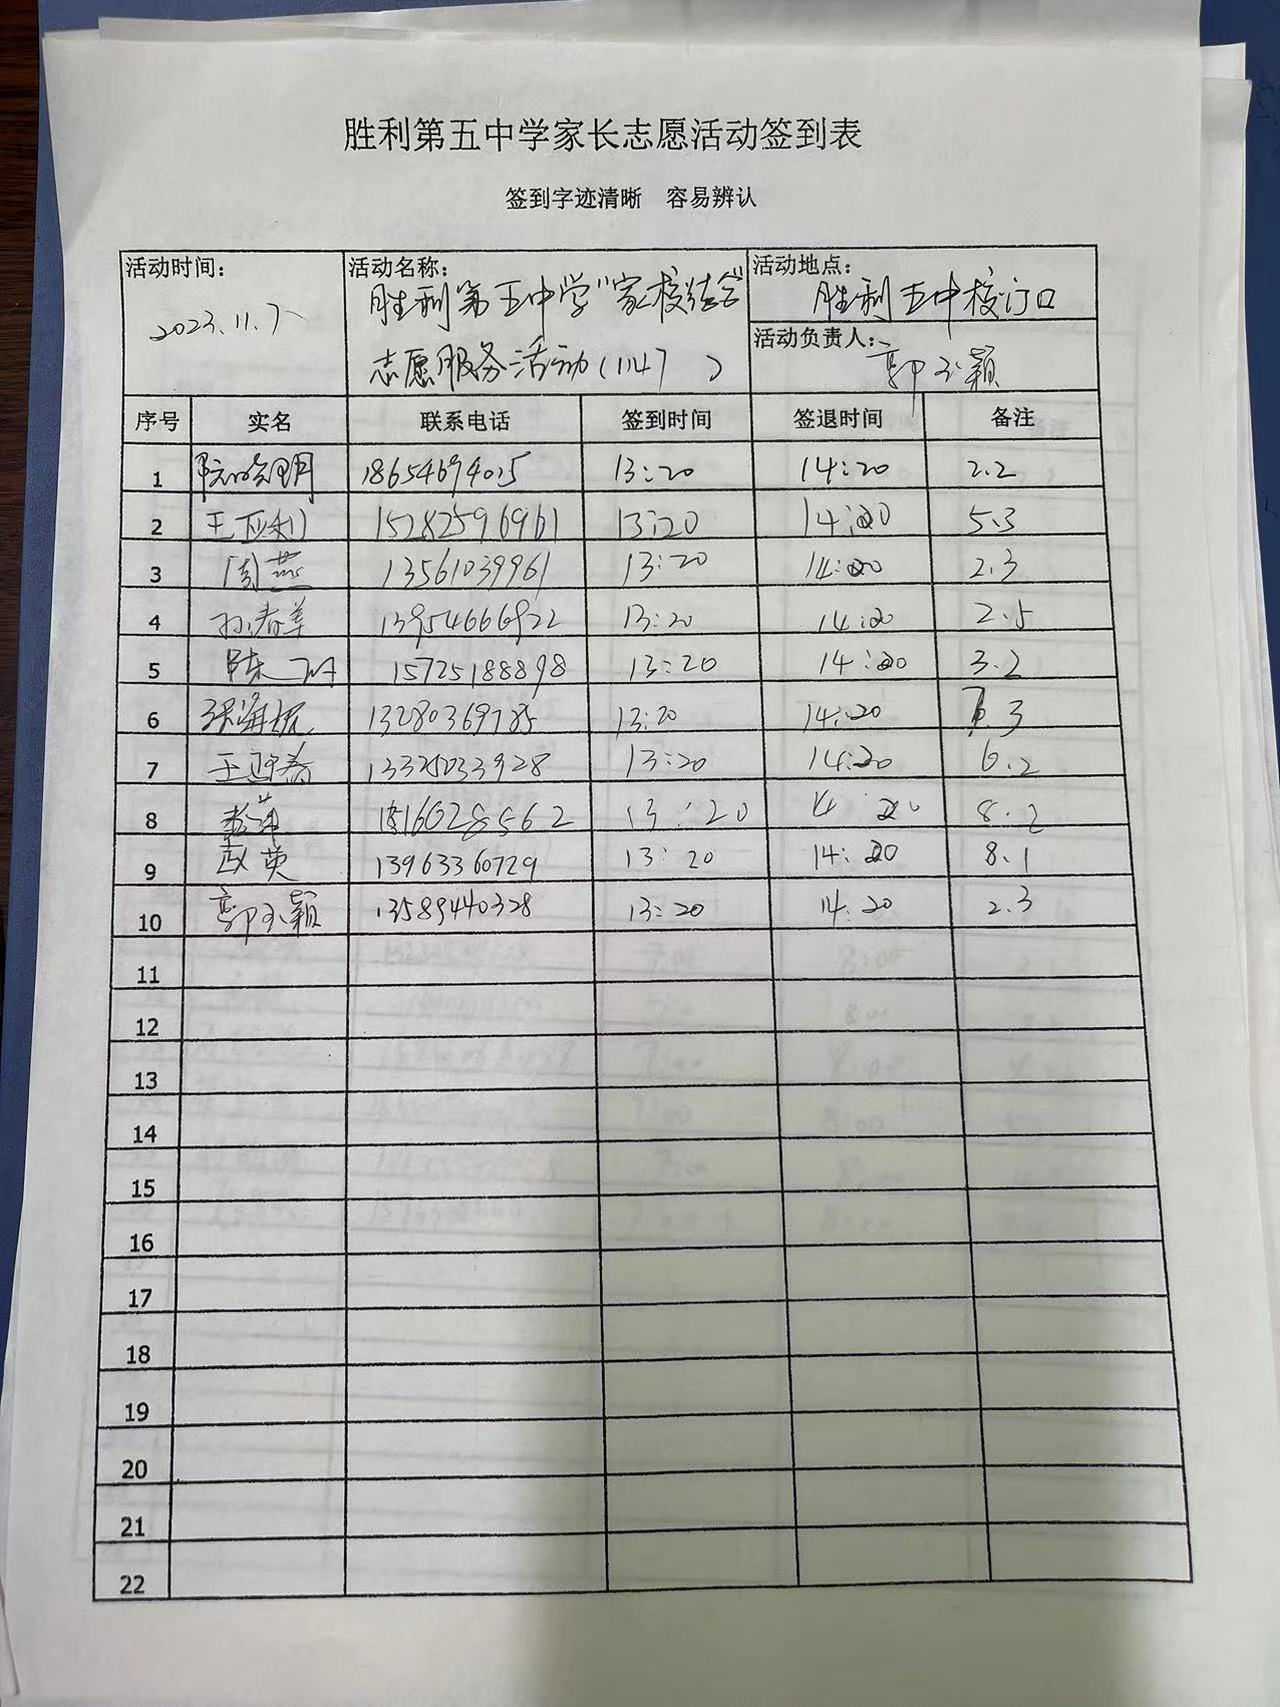 胜利第五中学家长志愿活动签到表
签到字迹清晰 容易辨认
活动时间: 2023.11.7
活动名称: 胜利第五中学"家校结合"
志愿服务活动(1147 )
活动地点: 胜利五中校门口
活动负责人: 郭玉颖
序号 实名 联系电话 签到时间 签退时间 备注
1 13:20 14:20 2.2
2 15282596961 13:20 14:20 5.3
3 周燕 13561039961 13:20 14:20 2.3
4 13954666922 13:20 14:20 2.5
5 陈 15725188898 13:20 14:20 3.2
6 13280369785 13:20 14:20 3
7 王迎春 13325033928 13:20 14:20 6.2
8 13:20 14:20 8.2
9 赵英 13963360729 13:20 14:20 8.1
10 郭玉颖 13589440328 13:20 14:20 2.3
11
12
13
14
15
16
17
18
19
20
21
22